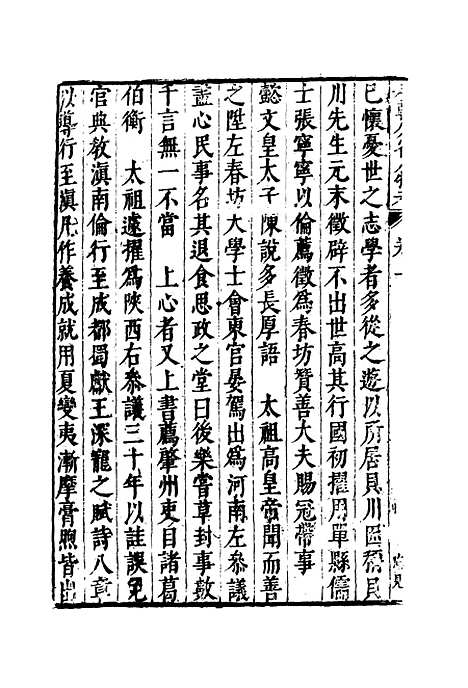 已懷憂世之志學者多從之遊以所居貝川因稱貝
川先生元末徵辟不出世高其行國初擢用單縣儒
士張寧寧以倫薦徵為春坊贊善大夫賜冠帶事
懿文皇太子陳說多長厚語　太祖高皇帝聞而善
之陞左春坊大學士會東宮晏駕出為河南左叅議
盡心民事名其退食思政之堂曰後樂嘗草封事數
千言無一不當　上心者又上書薦肇州吏目諸葛
伯衡　太祖遽擢為陝西右叅議三十年以詿誤免
官典教滇南倫行至成都蜀獻王深寵之賦詩八章
以導行至滇凡作養成就用夏變夷漸摩膏煦皆出